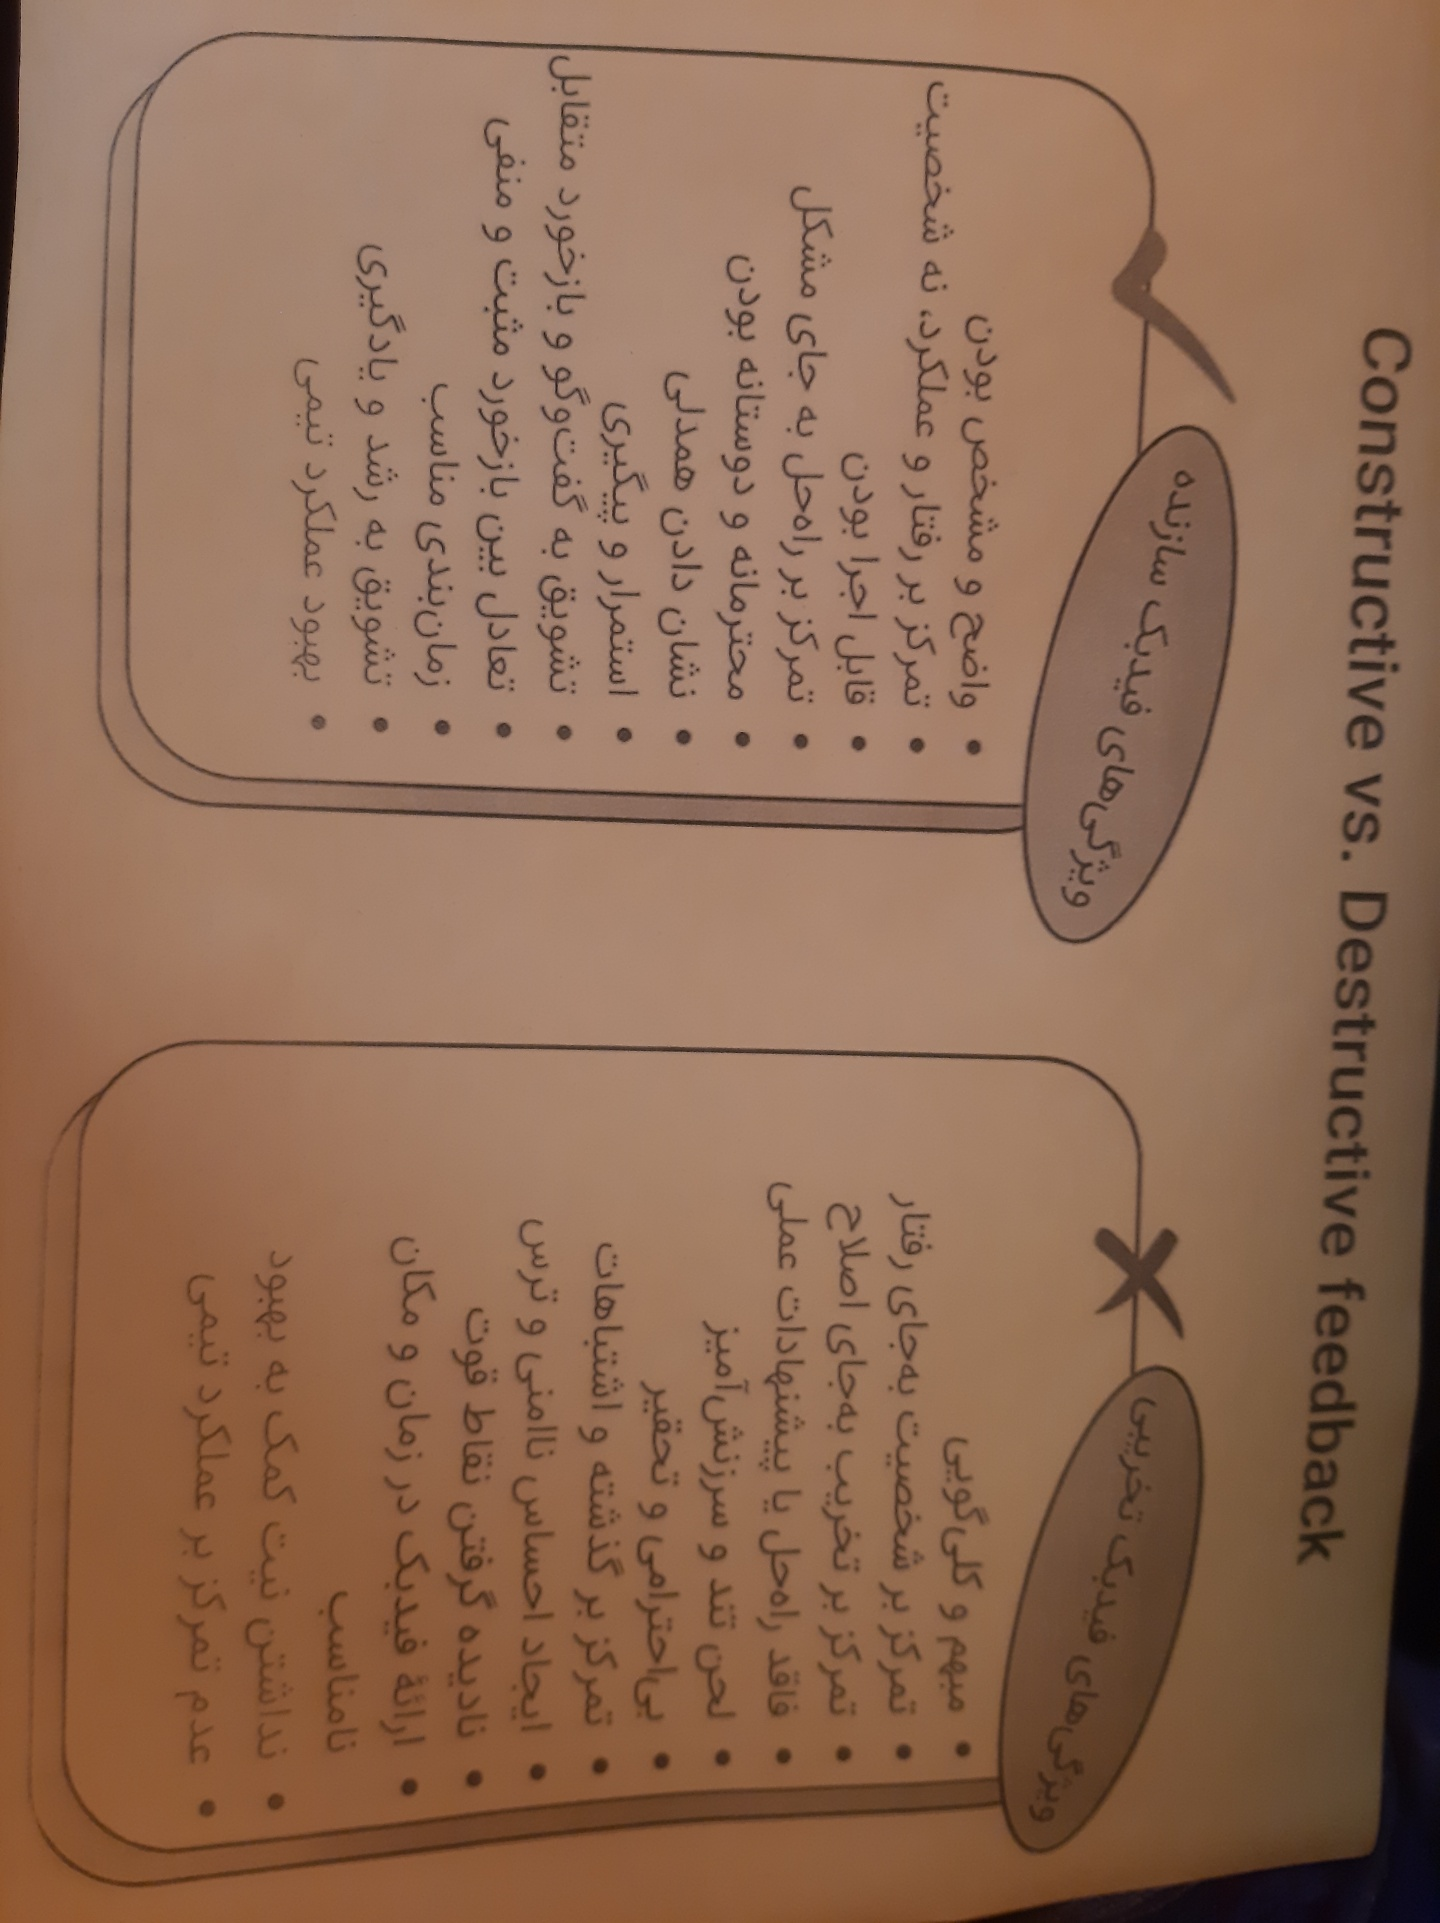 Constructive vs. Destructive feedback
ویژگی‌های فیدبک سازنده
• واضح و مشخص بودن
• تمرکز بر رفتار و عملکرد، نه شخصیت
• قابل اجرا بودن
• تمرکز بر راه‌حل به جای مشکل
• محترمانه و دوستانه بودن
• نشان دادن همدلی
• استمرار و پیگیری
• تشویق به گفت‌وگو و بازخورد متقابل
• تعادل بین بازخورد مثبت و منفی
• زمان‌بندی مناسب
• تشویق به رشد و یادگیری
• بهبود عملکرد تیمی
ویژگی‌های فیدبک تخریبی
• مبهم و کلی‌گویی
• تمرکز بر شخصیت به‌جای رفتار
• تمرکز بر تخریب به‌جای اصلاح
• فاقد راه‌حل یا پیشنهادات عملی
• لحن تند و سرزنش‌آمیز
• بی‌احترامی و تحقیر
• تمرکز بر گذشته و اشتباهات
• ایجاد احساس ناامنی و ترس
• نادیده گرفتن نقاط قوت
• ارائهٔ فیدبک در زمان و مکان
نامناسب
• نداشتن نیت کمک به بهبود
• عدم تمرکز بر عملکرد تیمی